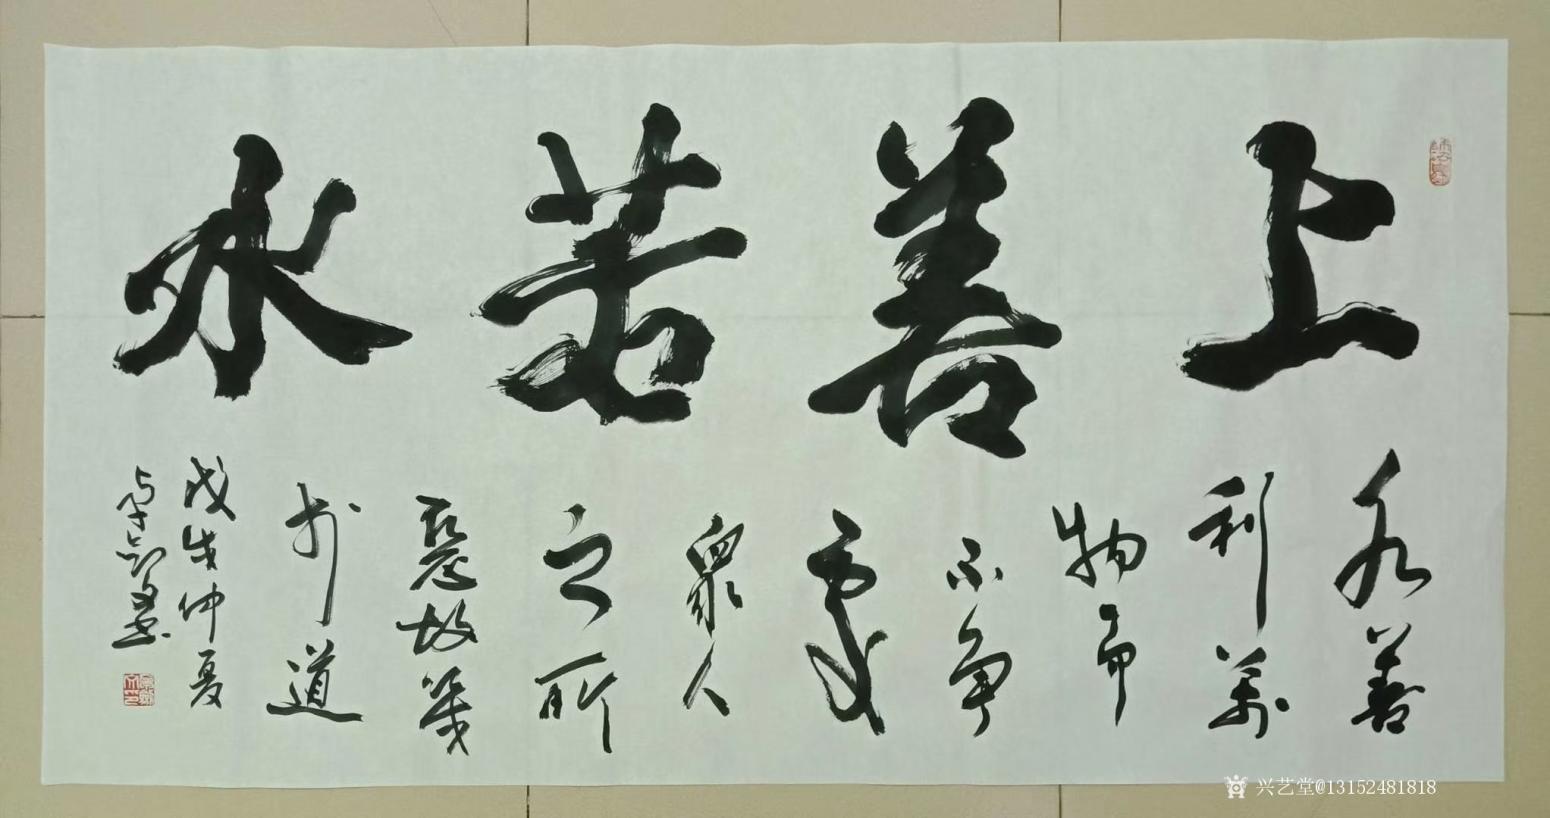 上善若水
水善
利萬
物而
不争
處
衆人
之所
惡故幾
於道
戊戌仲夏
兴艺堂@13152481818